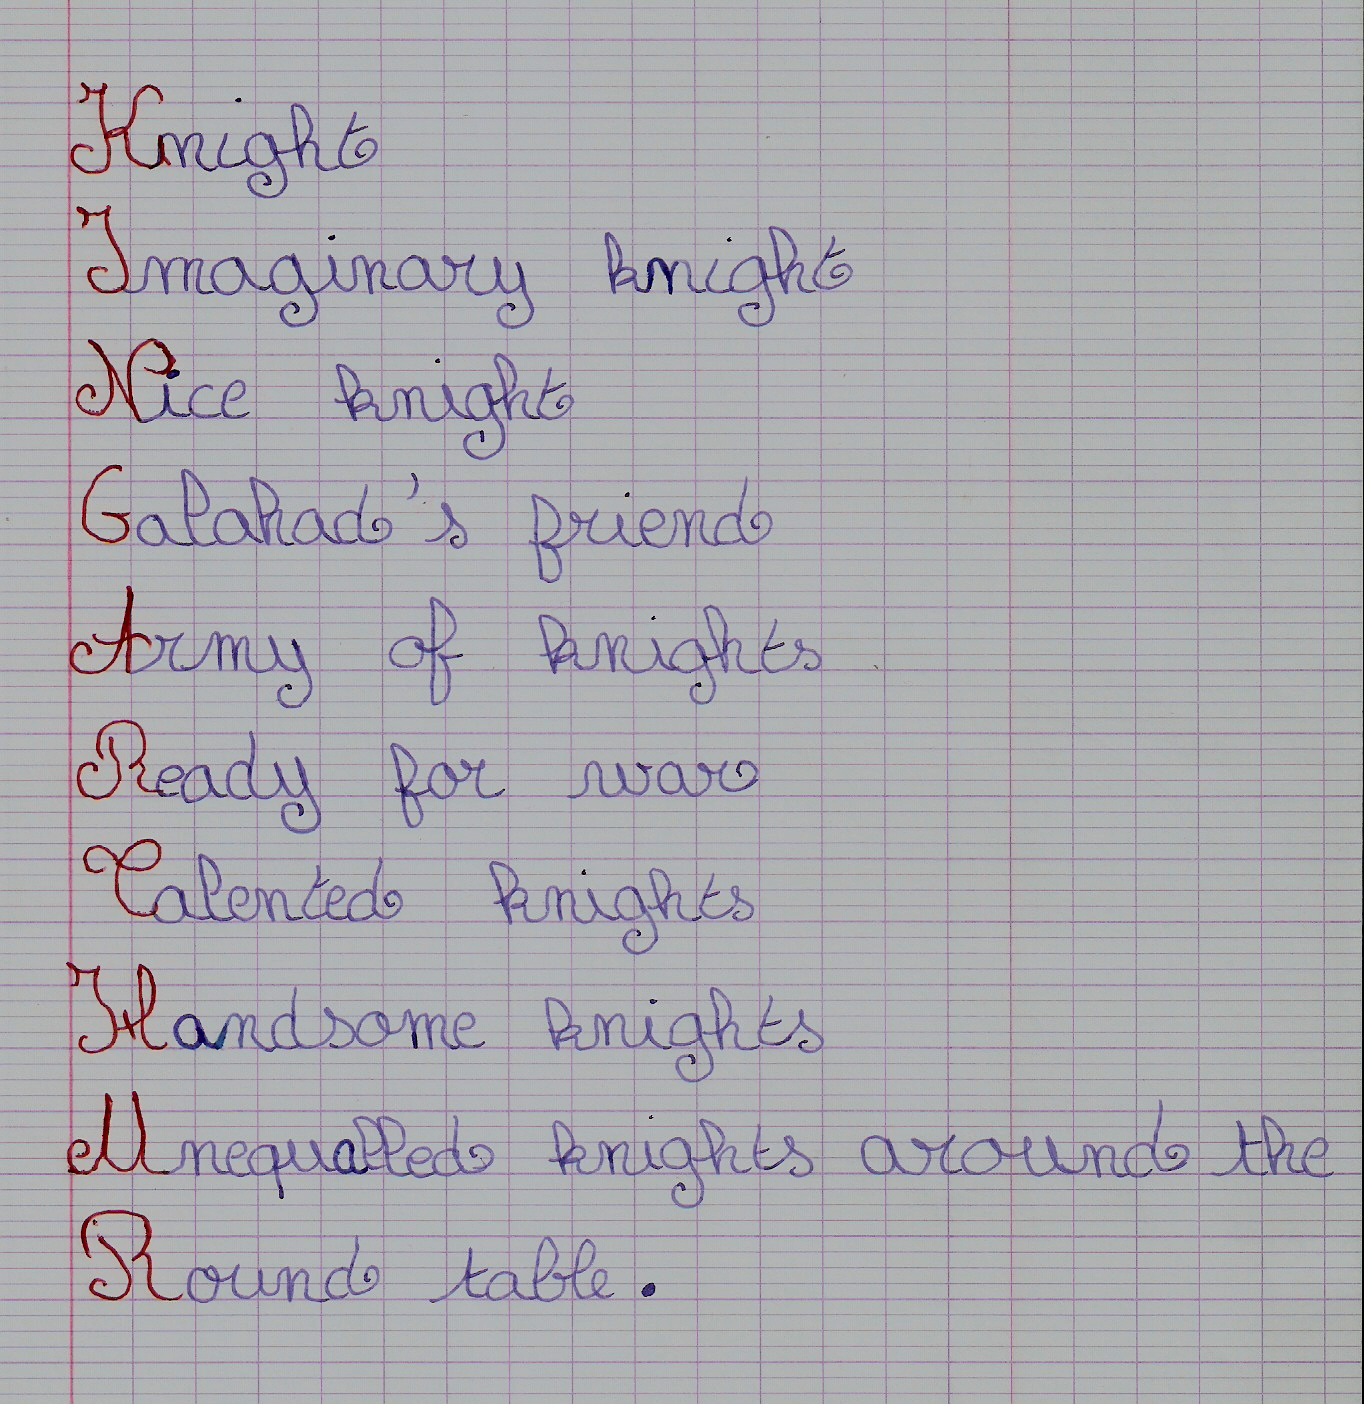 Knight
Imaginary knight
Nice knight
Galahad's friend
Army of knights
Ready for war
Talented knights
Handsome knights
Unequalled knights around the
Round table.